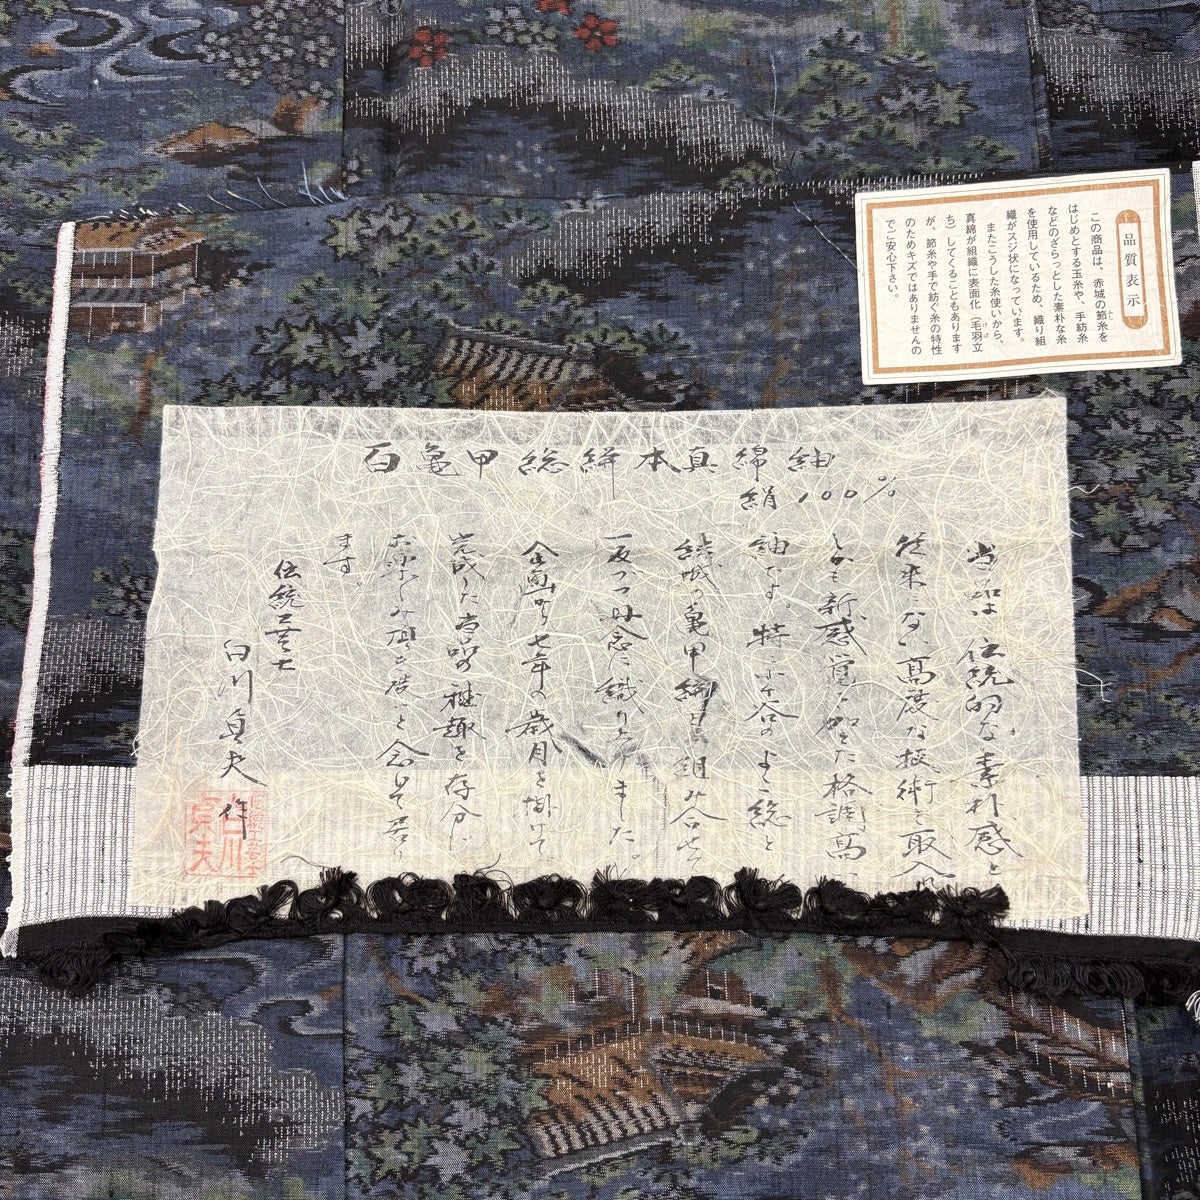 品質表示
この商品は、赤城の節糸を
はじめとする玉糸や、手紡糸
などのざらっとした素朴な糸
を使用しているため、織り組
織がスジ状になっています。
またこうした糸使いから、
真綿が組織に表面化（毛羽立
ち）してくることもあります
が、節糸や手で紡ぐ糸の特性
のためキズではありませんの
でご安心下さい。
百亀甲総絣本真綿紬
絹100%
当品は伝統的な素朴感と
従来にない高度な技術を取入れ
しかも新感覚を加えた格調高い
紬です。特に
結城の亀甲絣を組み合せて
一反づつ丹念に織り上げました。
企画から七年の歳月を掛けて
完成した の雅趣を存分に
お楽しみ頂き度いと念じて居り
ます。
伝統工芸士
白川貞夫作
白川
貞夫